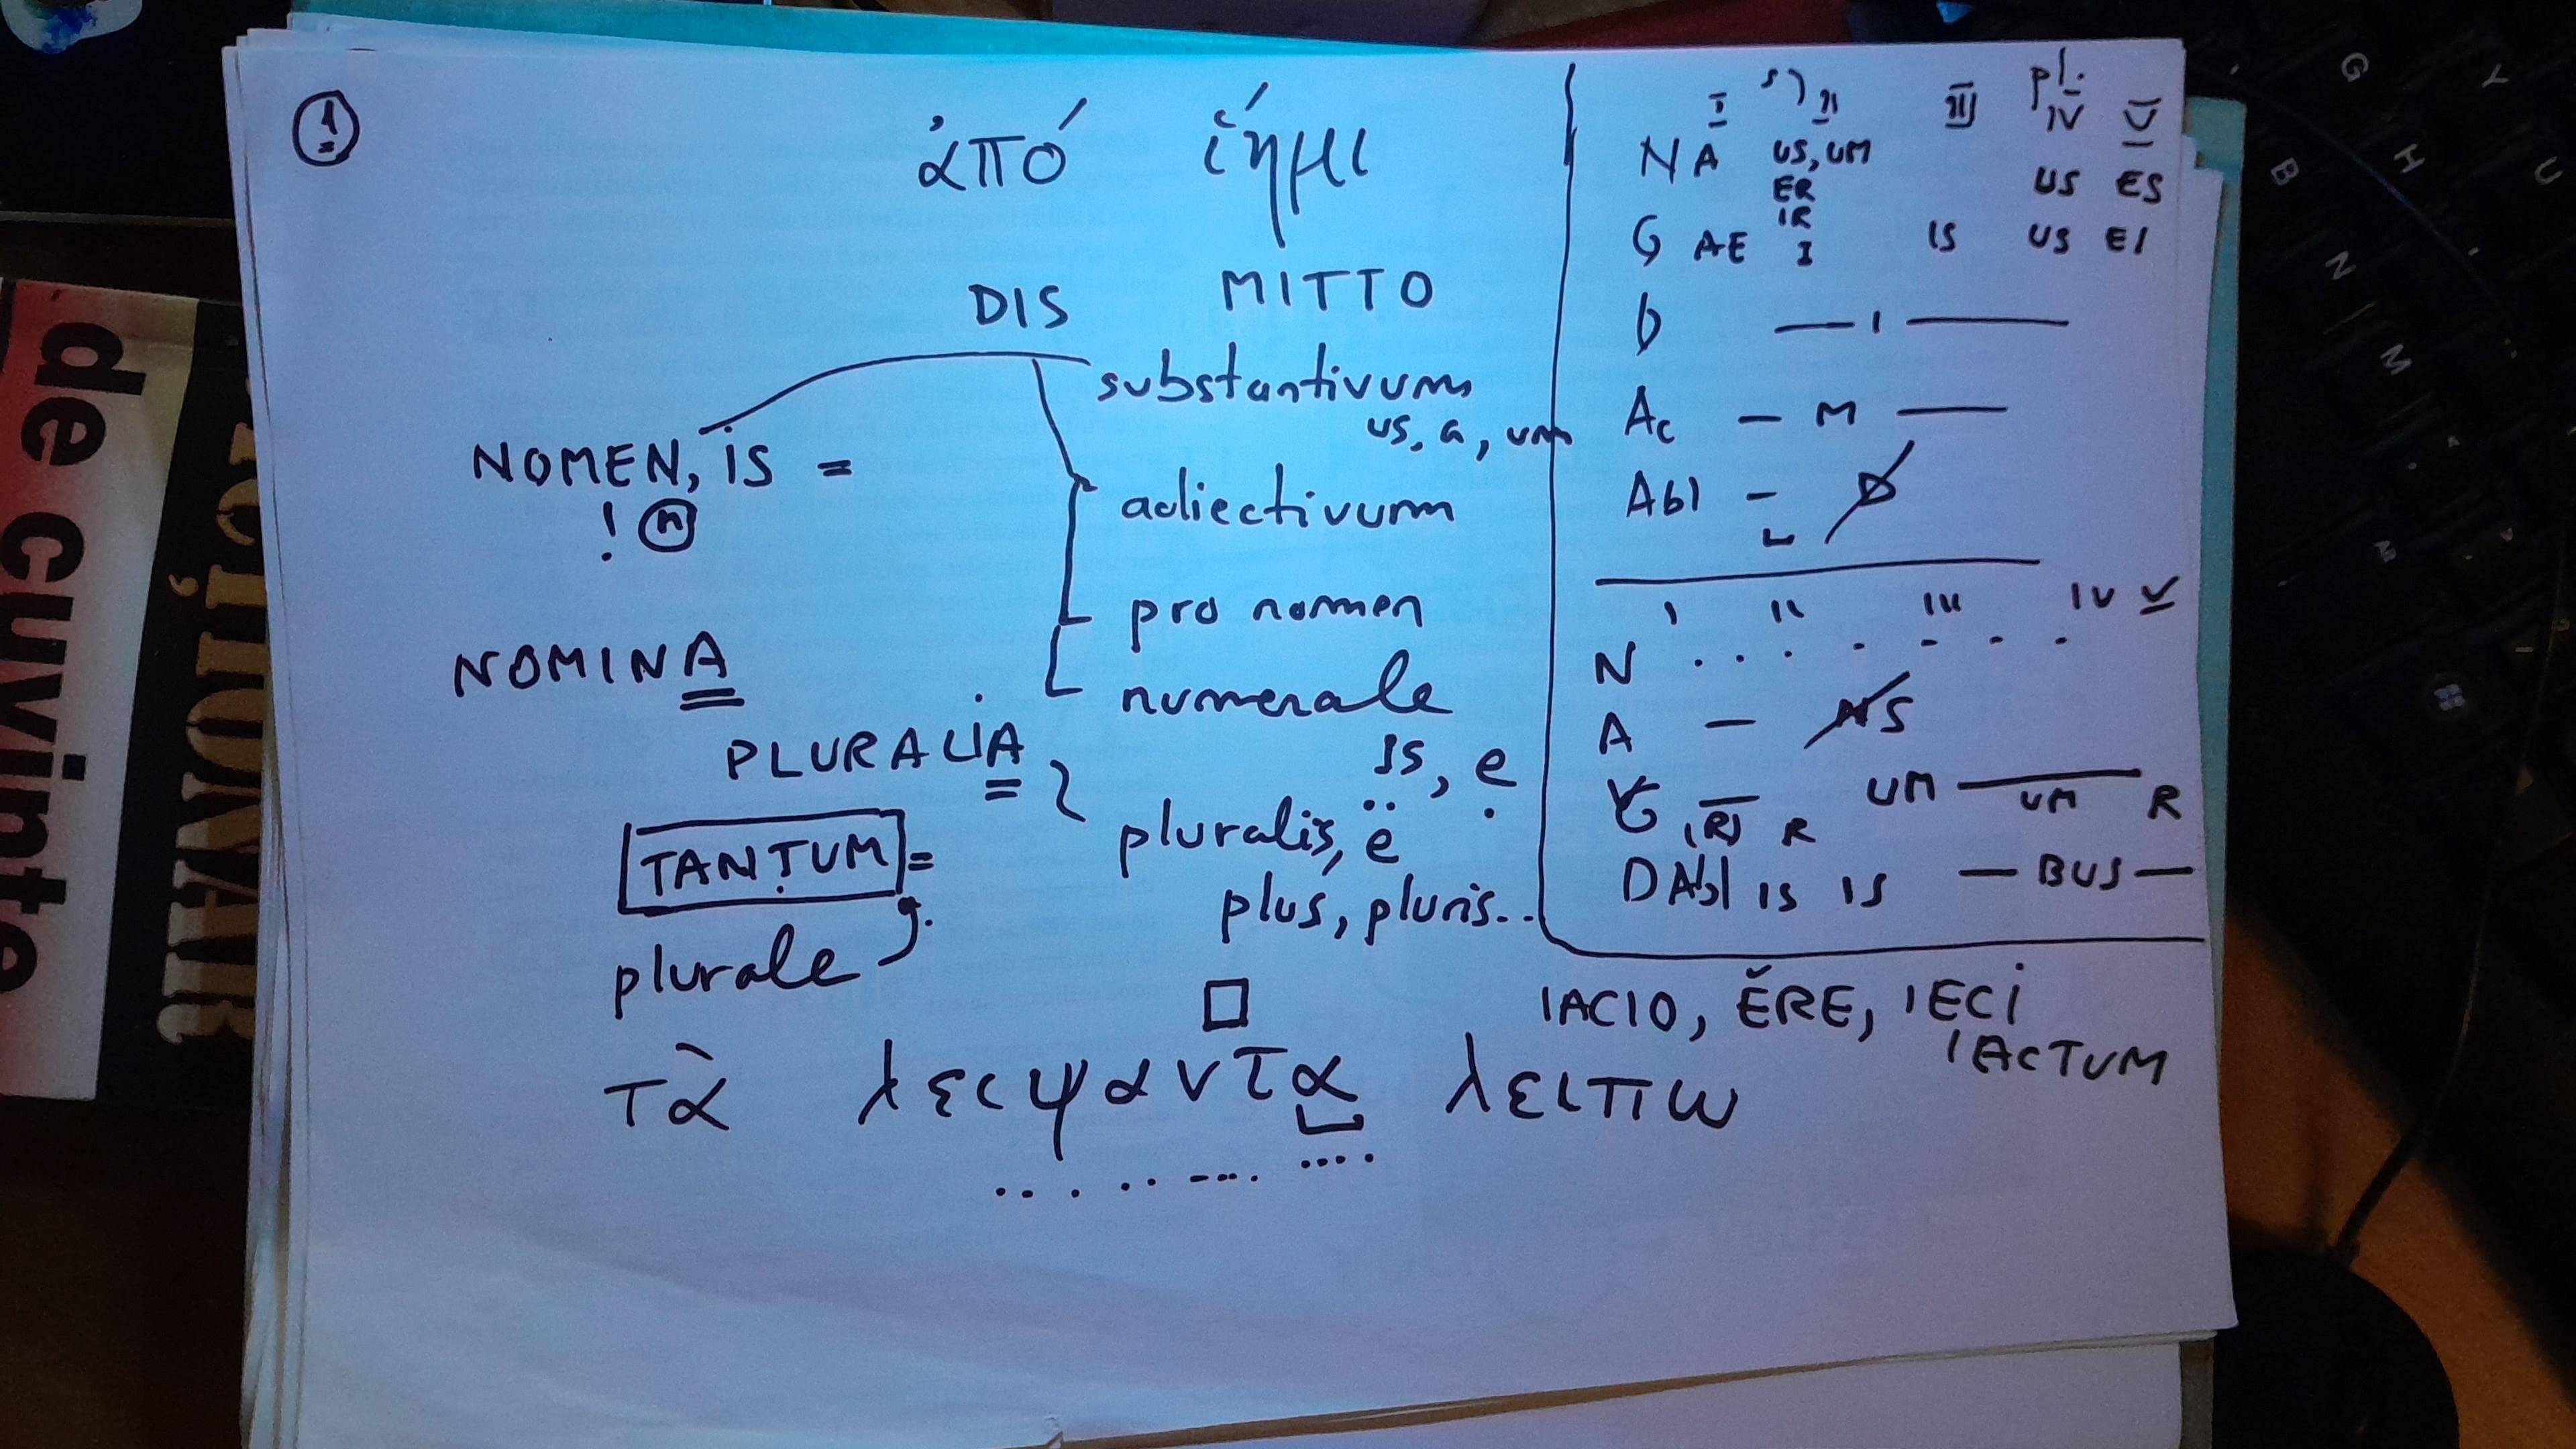 1
ἀπό ἵημι
DIS MITTO
substantivum
us, a, um
NOMEN, IS =
! n
adiectivum
pro nomen
NOMINA
numerale
PLURALIA
IS, e
pluralis, e
TANTUM =
plus, pluris..
plurale
τὰ λειψαντα λειπω
I II III pl. IV V
N A US, UM US ES
ER
IR
G AE I IS US EI
D — I —
Ac — M —
Abl —
I II III IV V
N
A — S
G (R) R UM — UM R
D Abl IS IS — BUS —
IACIO, ĔRE, IECI
IACTUM
de cuvinte
G Y B H U N M